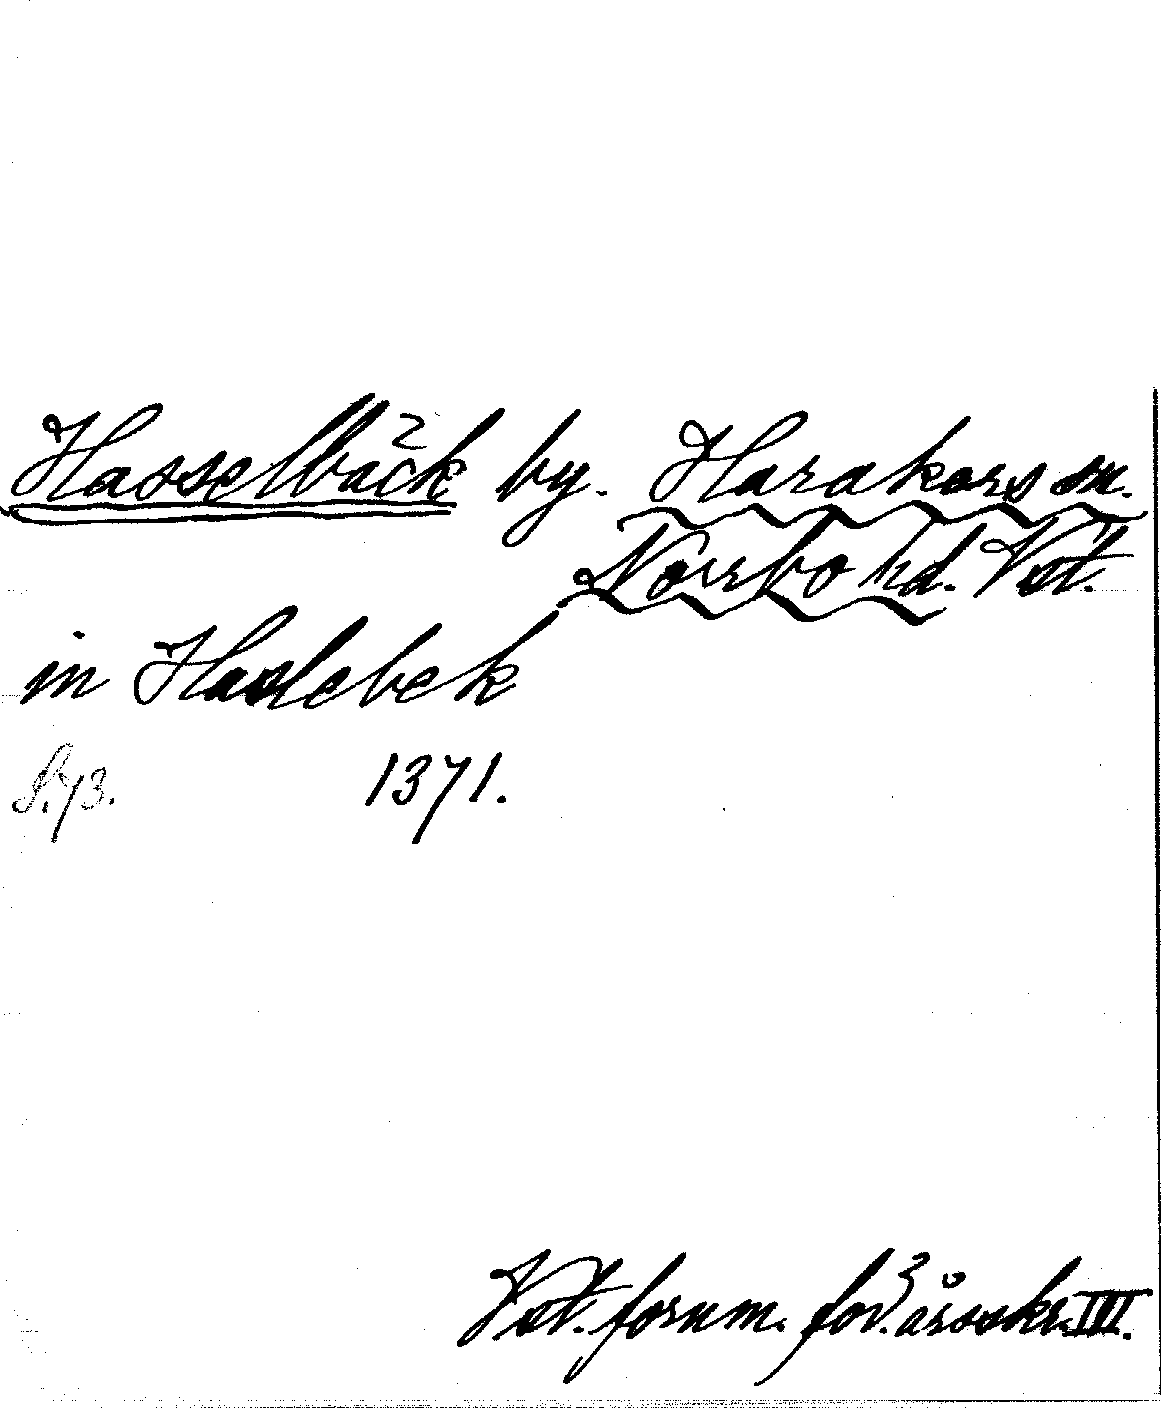 Hasselbäck by. Harakers sn.
Norrbo hd. Vst.
in Haslebek
S.73. 1371.
Vst. fornm. för. årsskr. III.